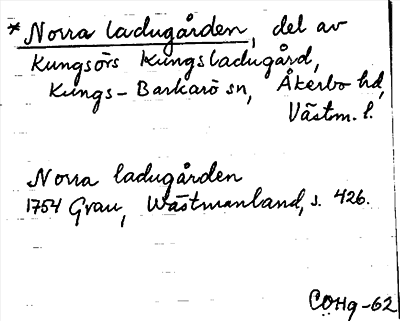 * Norra ladugården, del av
Kungsörs Kungsladugård,
Kungs-Barkarö sn, Åkerbo hd,
Västm. l.
Norra ladugården
1754 Grau, Wästmanland, s. 426.
CÖHg-62